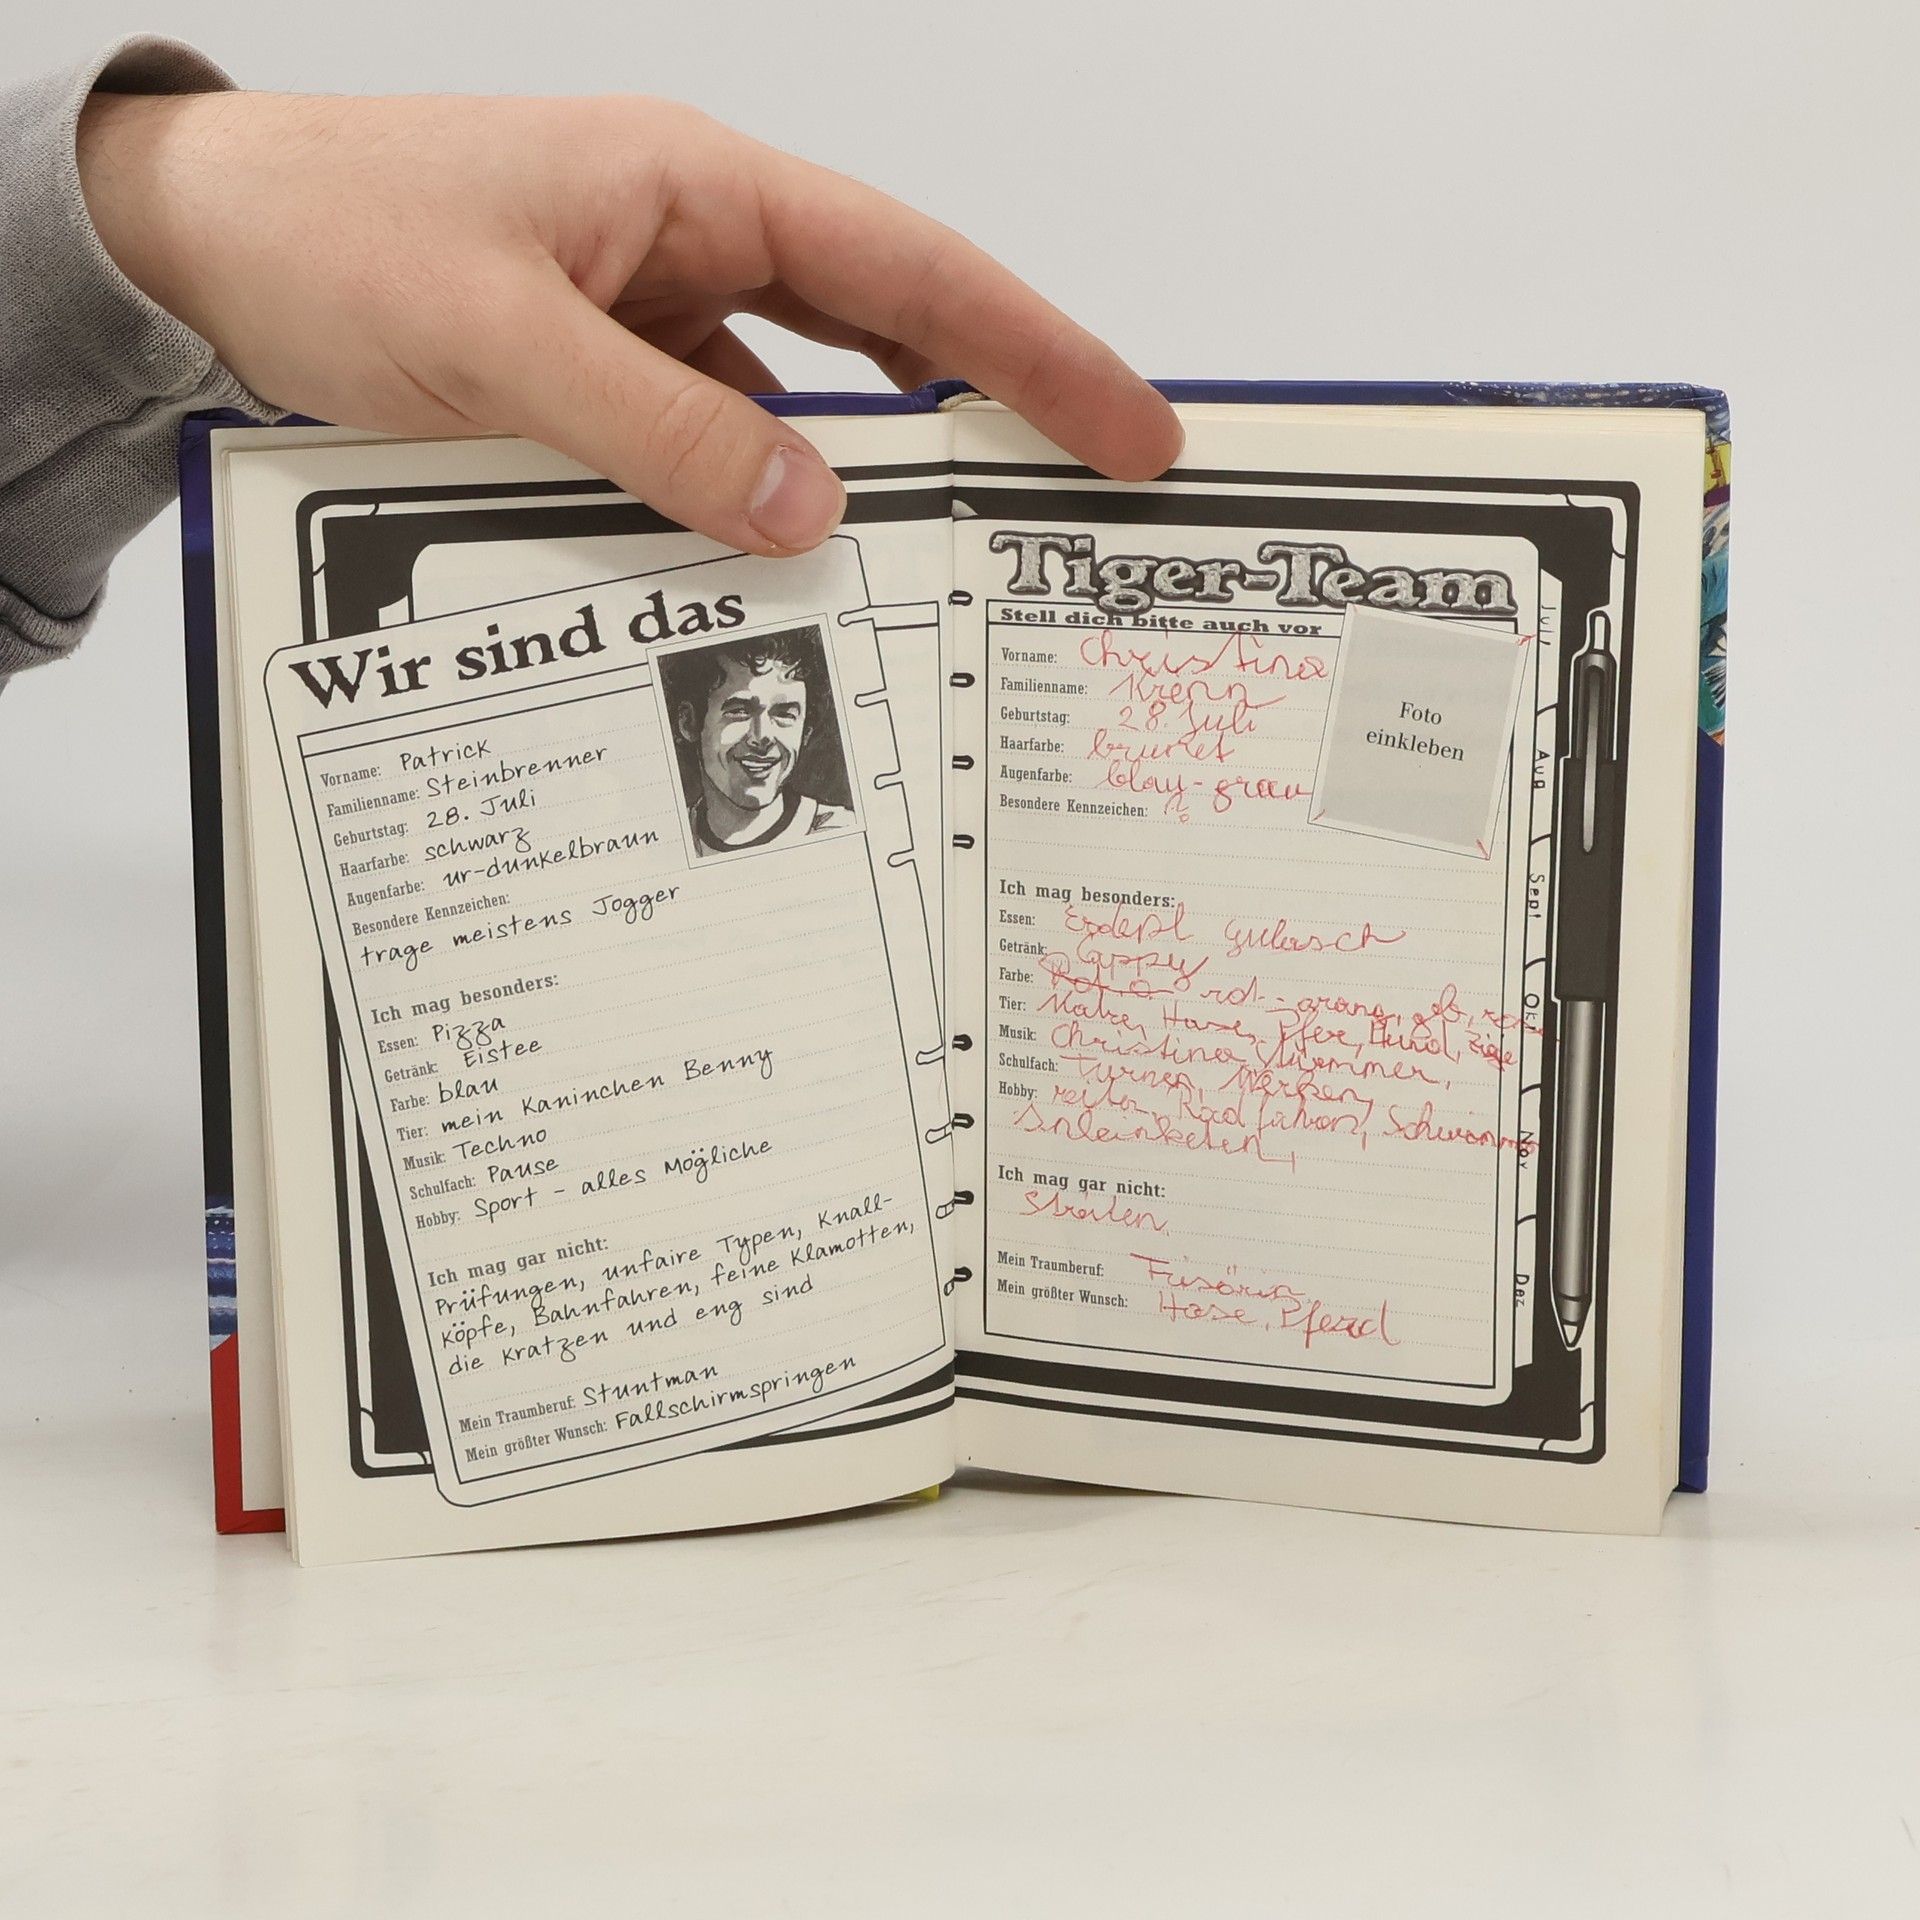 Wir sind das
Vorname: Patrick
Familienname: Steinbrenner
Geburtstag: 28. Juli
Haarfarbe: schwarz
Augenfarbe: ur-dunkelbraun
Besondere Kennzeichen:
trage meistens Jogger
Ich mag besonders:
Essen: Pizza
Getränk: Eistee
Farbe: blau
Tier: mein Kaninchen Benny
Musik: Techno
Schulfach: Pause
Hobby: Sport - alles Mögliche
Ich mag gar nicht:
Prüfungen, unfaire Typen, Knall-
köpfe, Bahnfahren, feine Klamotten,
die kratzen und eng sind
Mein Traumberuf: Stuntman
Mein größter Wunsch: Fallschirmspringen
Tiger-Team
Stell dich bitte auch vor
Vorname: Christina
Familienname: Krenn
Geburtstag: 28. Juli
Haarfarbe: brunet
Augenfarbe: blau-grau
Besondere Kennzeichen: ?
Foto
einkleben
Ich mag besonders:
Essen: Erdepl gulasch
Getränk: Cappy
Farbe: rot-orang, gelb,
Tier: Hase, Pfer, Hund, Zige
Musik: Christina Stürmmer,
Schulfach: Turnen, Werken,
Hobby: reiten, Rad fahren, Schwimmen
Inleinketen,
Ich mag gar nicht:
Streiten.
Mein Traumberuf: Frisörin
Mein größter Wunsch: Hase, Pferd
Juli
Aug
Sept
Okt
Nov
Dez